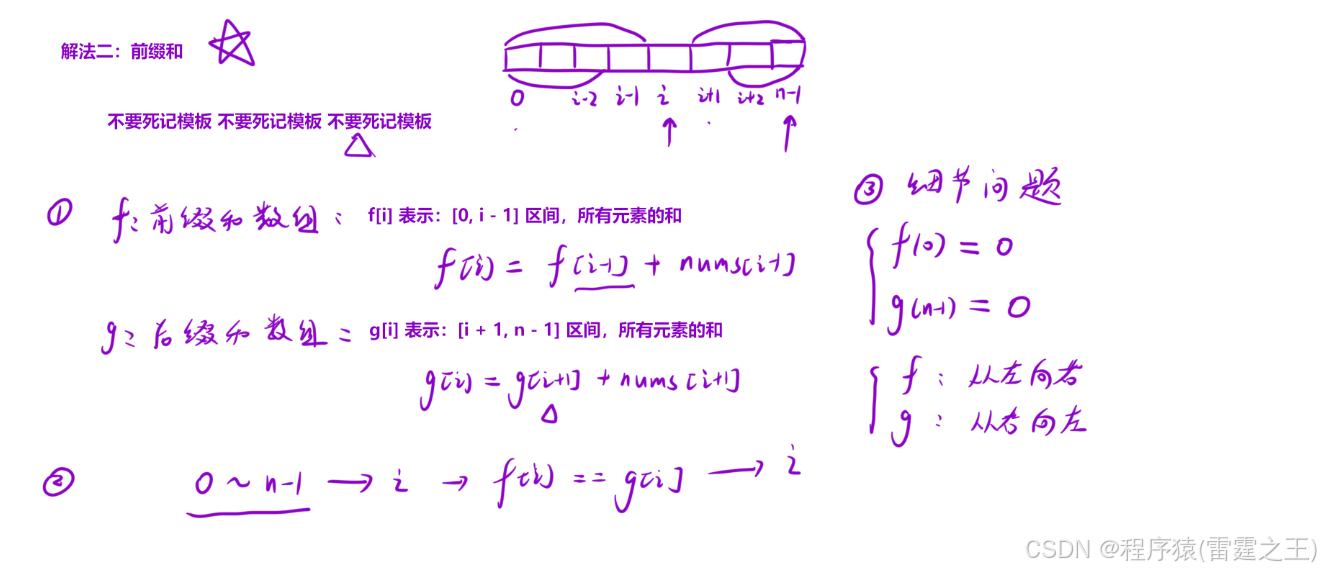 解法二：前缀和
0 i-2 i-1 i i+1 i+2 n-1
不要死记模板 不要死记模板 不要死记模板
① f：前缀和数组： f[i] 表示：[0, i - 1] 区间，所有元素的和
f[i] = f[i-1] + nums[i-1]
g：后缀和数组： g[i] 表示：[i + 1, n - 1] 区间，所有元素的和
g[i] = g[i+1] + nums[i+1]
② 0 ~ n-1 → i → f[i] == g[i] → i
③ 细节问题
f(0) = 0
g(n-1) = 0
f：从左向右
g：从右向左
CSDN @程序猿(雷霆之王)